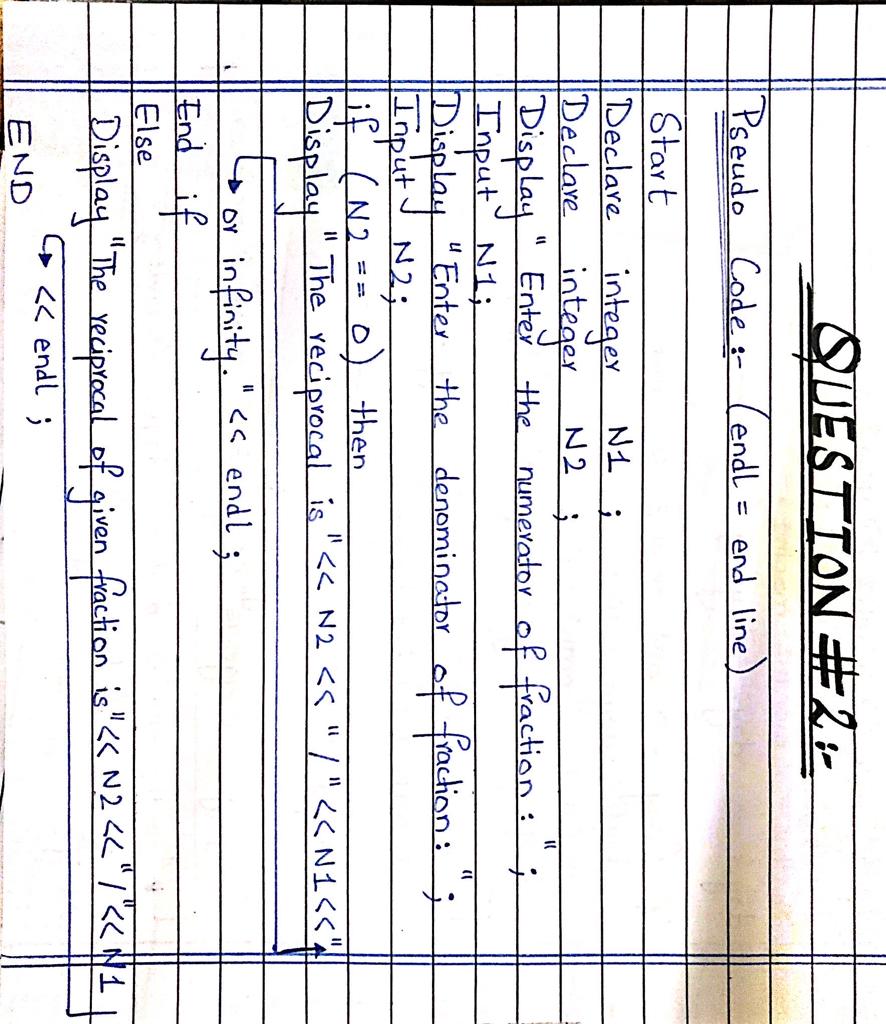 QUESTION #2:-
Pseudo Code:- (endl = end line)
Start
Declare integer N1 ;
Declare integer N2 ;
Display " Enter the numerator of fraction : " ;
Input N1;
Display "Enter the denominator of fraction: " ;
Input N2;
if (N2 == 0) then
Display "The reciprocal is "<< N2 << "/"<<N1<<"
or infinity. "<< endl ;
End if
Else
Display "The reciprocal of given fraction is"<< N2 << "/"<< N1
<< endl ;
END